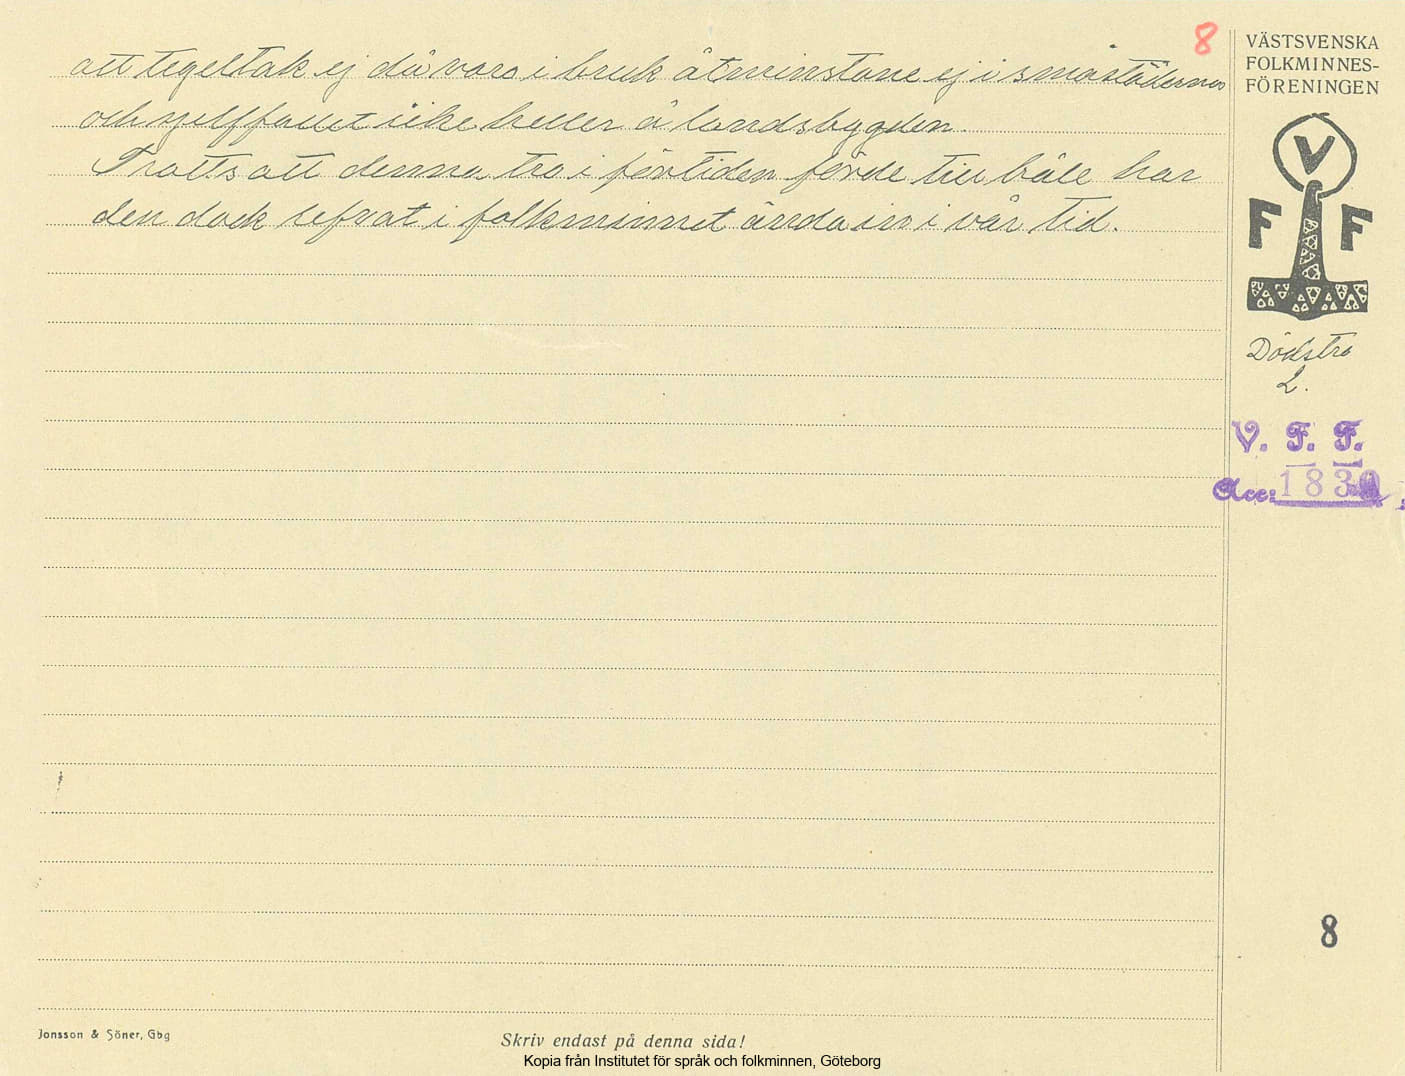 8
att tegeltak ej då voro i bruk åtminstone ej i småstäderna
och sjelffallet icke heller å landsbygden.
Trotts att denna tro i förtiden förde till båle har
den dock lefvat i folkminnet ända in i vår tid.
VÄSTSVENSKA
FOLKMINNES-
FÖRENINGEN
V
F F
Dödstro
2.
V. F. F.
Acc: 1830
8
Jonsson & Söner, Gbg
Skriv endast på denna sida!
Kopia från Institutet för språk och folkminnen, Göteborg